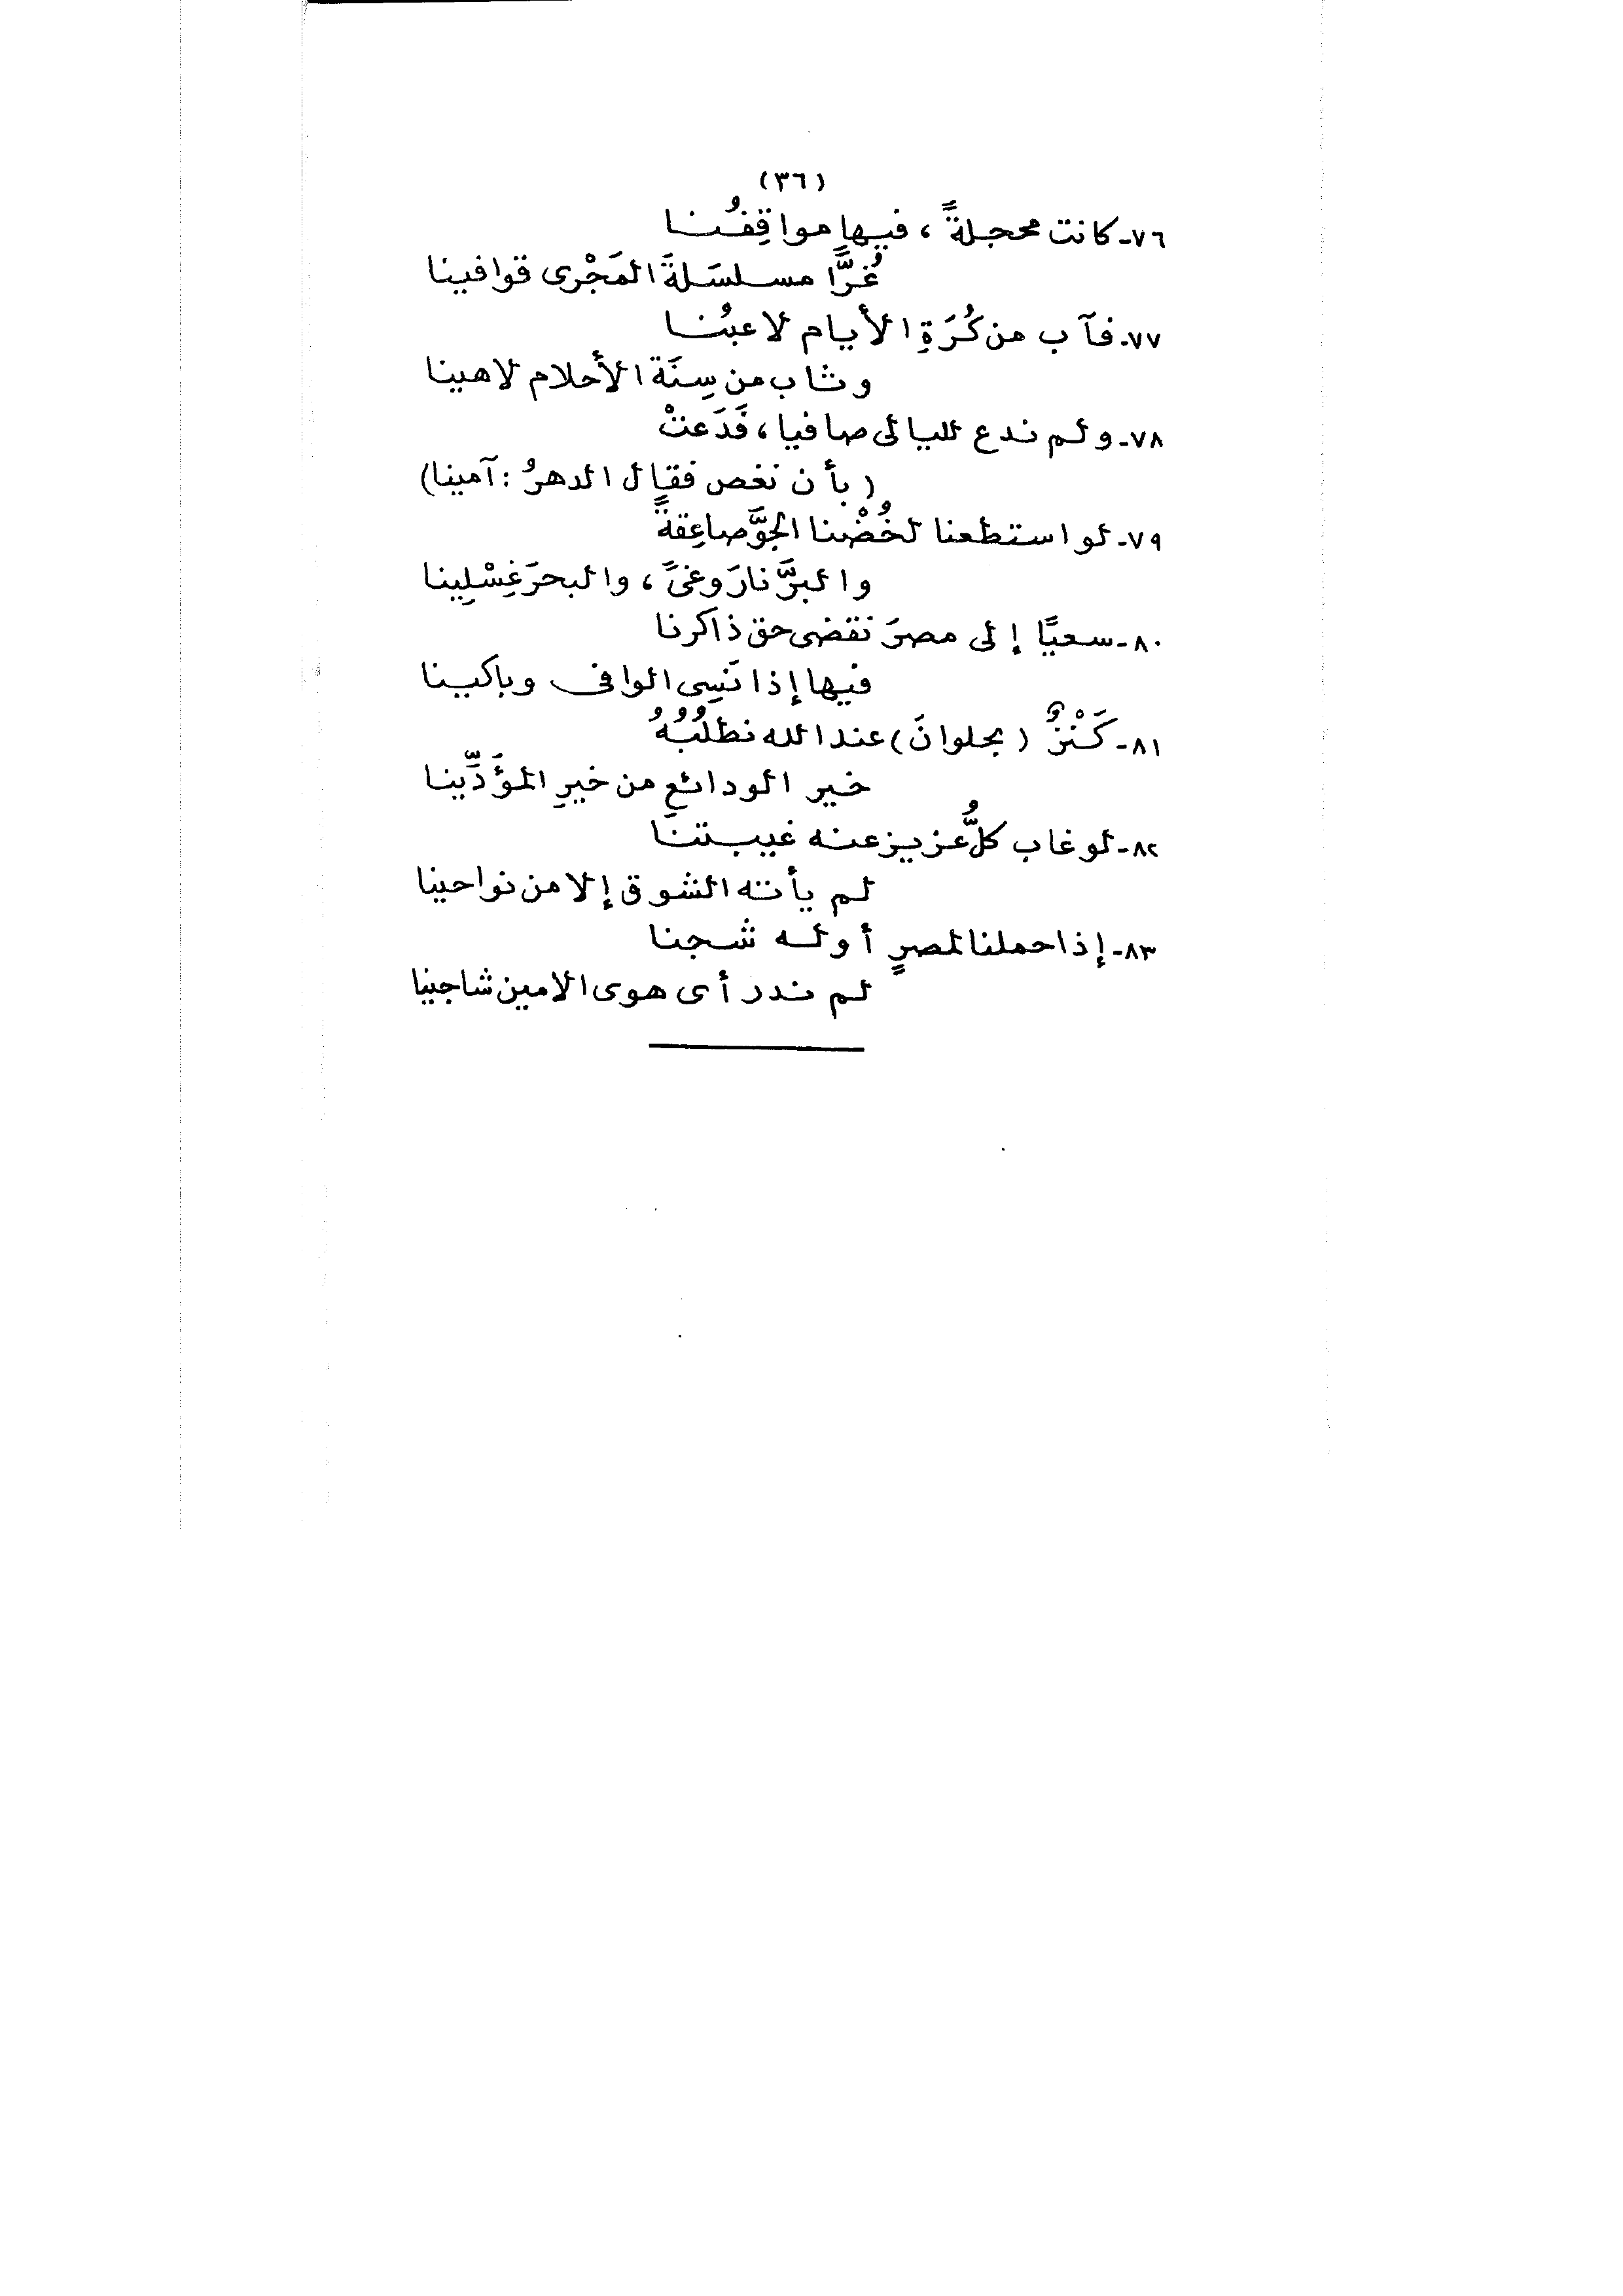 (٣٦)
٧٦- كانت محجلةً ، فيها مواقِفُنا
غُرًّا مسلسَلةَ المَجْرى قوافينا
٧٧- فآب من كُرَةِ الأيام لاعبُنا
وثاب من سِنَة الأحلام لاهينا
٧٨- ولم ندع لليالى صافيا ، فَدَعتْ
(بأن نغص فقال الدهرُ : آمينا)
٧٩- لو استطعنا لخُضْنا الجوَّ صاعِقةً
والبرَّ نارَ وغىً ، والبحرَ غِسْلِينا
٨٠- سعيًا إلى مصرَ نقضى حق ذاكرنا
فيها إذا نَسِى الوافى وباكينا
٨١- كَنْزٌ (بحلوانَ) عند الله نطلُبُهُ
خير الودائعِ من خيرِ المؤَدِّينا
٨٢- لو غاب كلُّ عزيز عنه غيبتنَا
لم يأته الشوق إلا من نواحينا
٨٣- إذا حملنا لمصرٍ أو له شجنا
لم ندر أى هوى الامين شاجينا